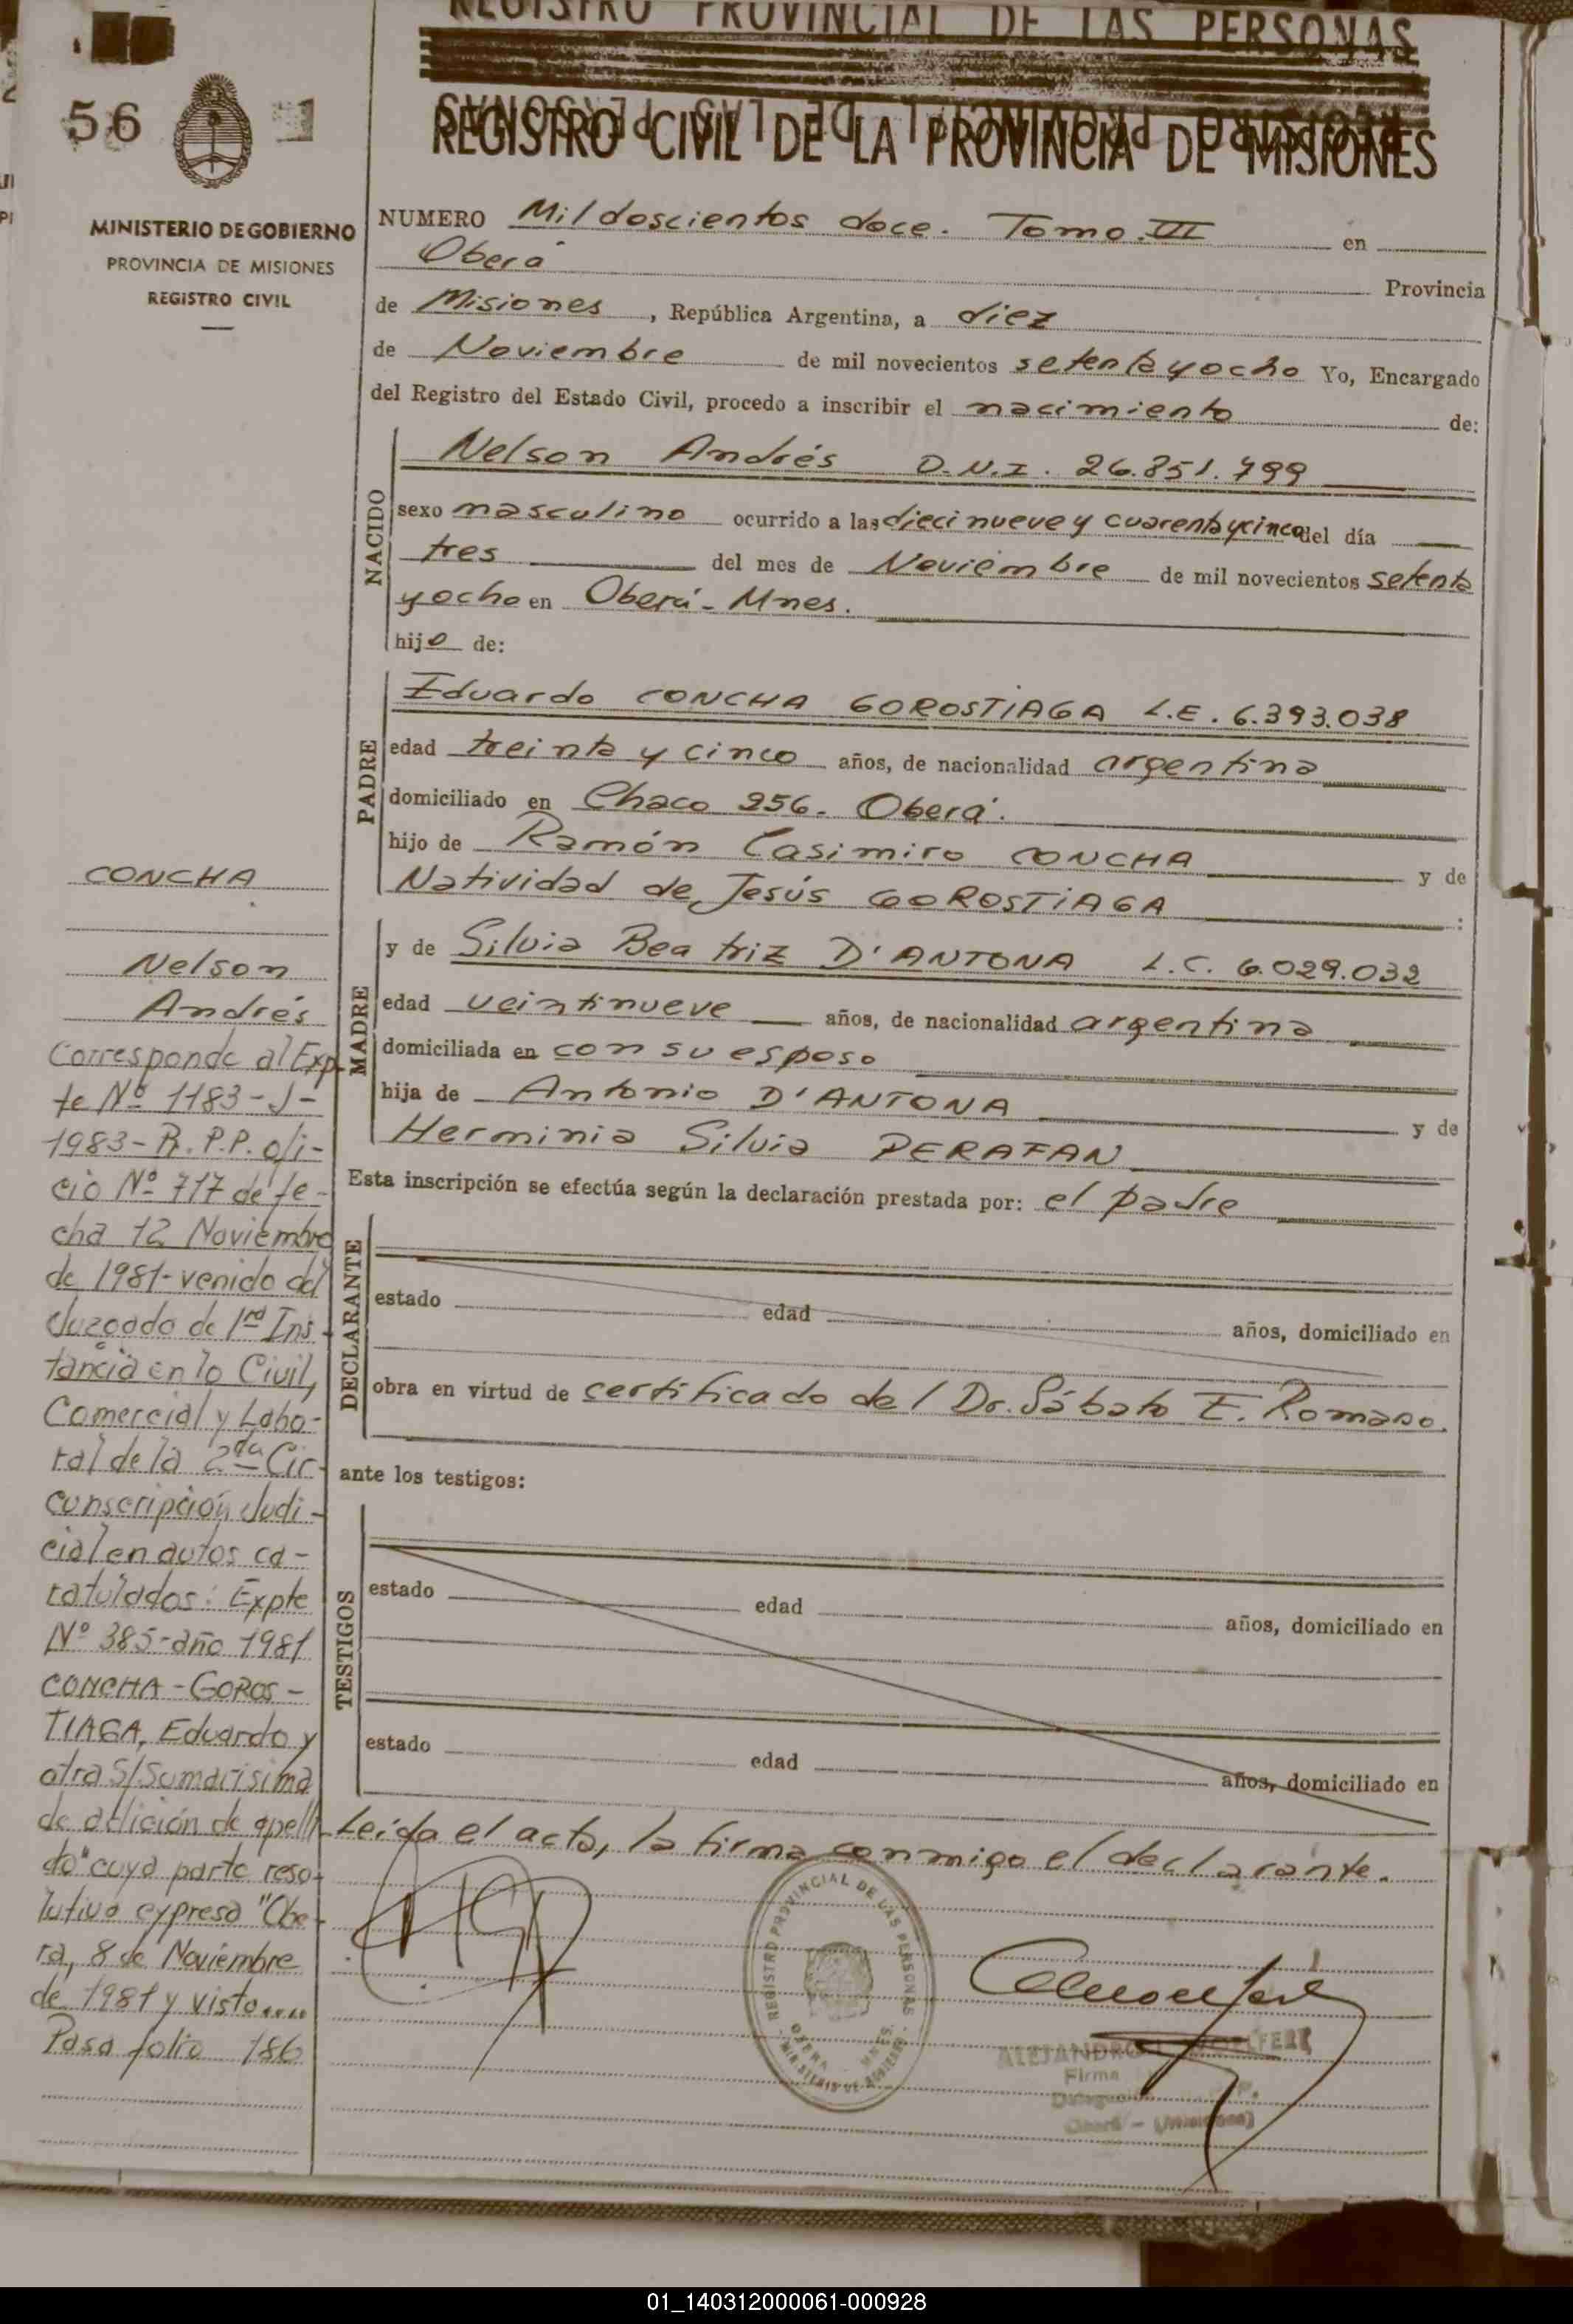 REGISTRO PROVINCIAL DE LAS PERSONAS
REGISTRO CIVIL DE LA PROVINCIA DE MISIONES
56
MINISTERIO DE GOBIERNO
PROVINCIA DE MISIONES
REGISTRO CIVIL
NUMERO Mil doscientos doce. Tomo. VII en
Oberá Provincia
de Misiones, República Argentina, a diez
de Noviembre de mil novecientos setenta y ocho Yo, Encargado
del Registro del Estado Civil, procedo a inscribir el nacimiento de:
NACIDO
Nelson Andrés D.N.I. 26.851.799
sexo masculino ocurrido a las diecinueve y cuarenta y cinco del día
tres del mes de Noviembre de mil novecientos setenta
y ocho en Oberá - Mnes.
hijo de:
PADRE
Eduardo CONCHA GOROSTIAGA L.E. 6.393.038
edad treinta y cinco años, de nacionalidad argentina
domiciliado en Chaco 256. Oberá.
hijo de Ramón Casimiro CONCHA y de
Natividad de Jesús GOROSTIAGA :
MADRE
y de Silvia Beatriz D'ANTONA L.C. 6.029.032
edad veintinueve años, de nacionalidad argentina
domiciliada en con su esposo
hija de Antonio D'ANTONA y de
Herminia Silvia PERAFAN
Esta inscripción se efectúa según la declaración prestada por: el padre
DECLARANTE
estado edad años, domiciliado en
obra en virtud de certificado del Dr. Sábato E. Romano.
ante los testigos:
TESTIGOS
estado edad años, domiciliado en
estado edad años, domiciliado en
Leída el acta, la firma conmigo el declarante.
REGISTRO PROVINCIAL DE LAS PERSONAS
OBERA MNES.
ALEJANDRO
Firma
CONCHA
Nelson
Andrés
Corresponde al Exp-
te Nº 1183-J-
1983- R.P.P. ofi-
cio Nº 717 de fe-
cha 12 Noviembre
de 1981- venido del
Juzgado de 1ra Ins-
tancia en lo Civil,
Comercial y Labo-
ral de la 2da Cir-
cunscripción Judi-
cial en autos ca-
ratulados: Expte
Nº 385- año 1981
CONCHA - GOROS-
TIAGA, Eduardo y
otra S/Sumarísima
de adición de apelli-
do" cuya parte reso-
lutiva expresa "Obe-
rá, 8 de Noviembre
de 1981 y visto....
Pasa folio 186
01_140312000061-000928